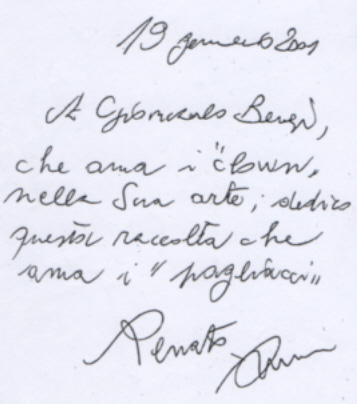 19 gennaio 2001
A Giancarlo Bengi,
che ama i "clown„
nella Sua arte, dedico
questa raccolta che
ama i "pagliacci„
Renato